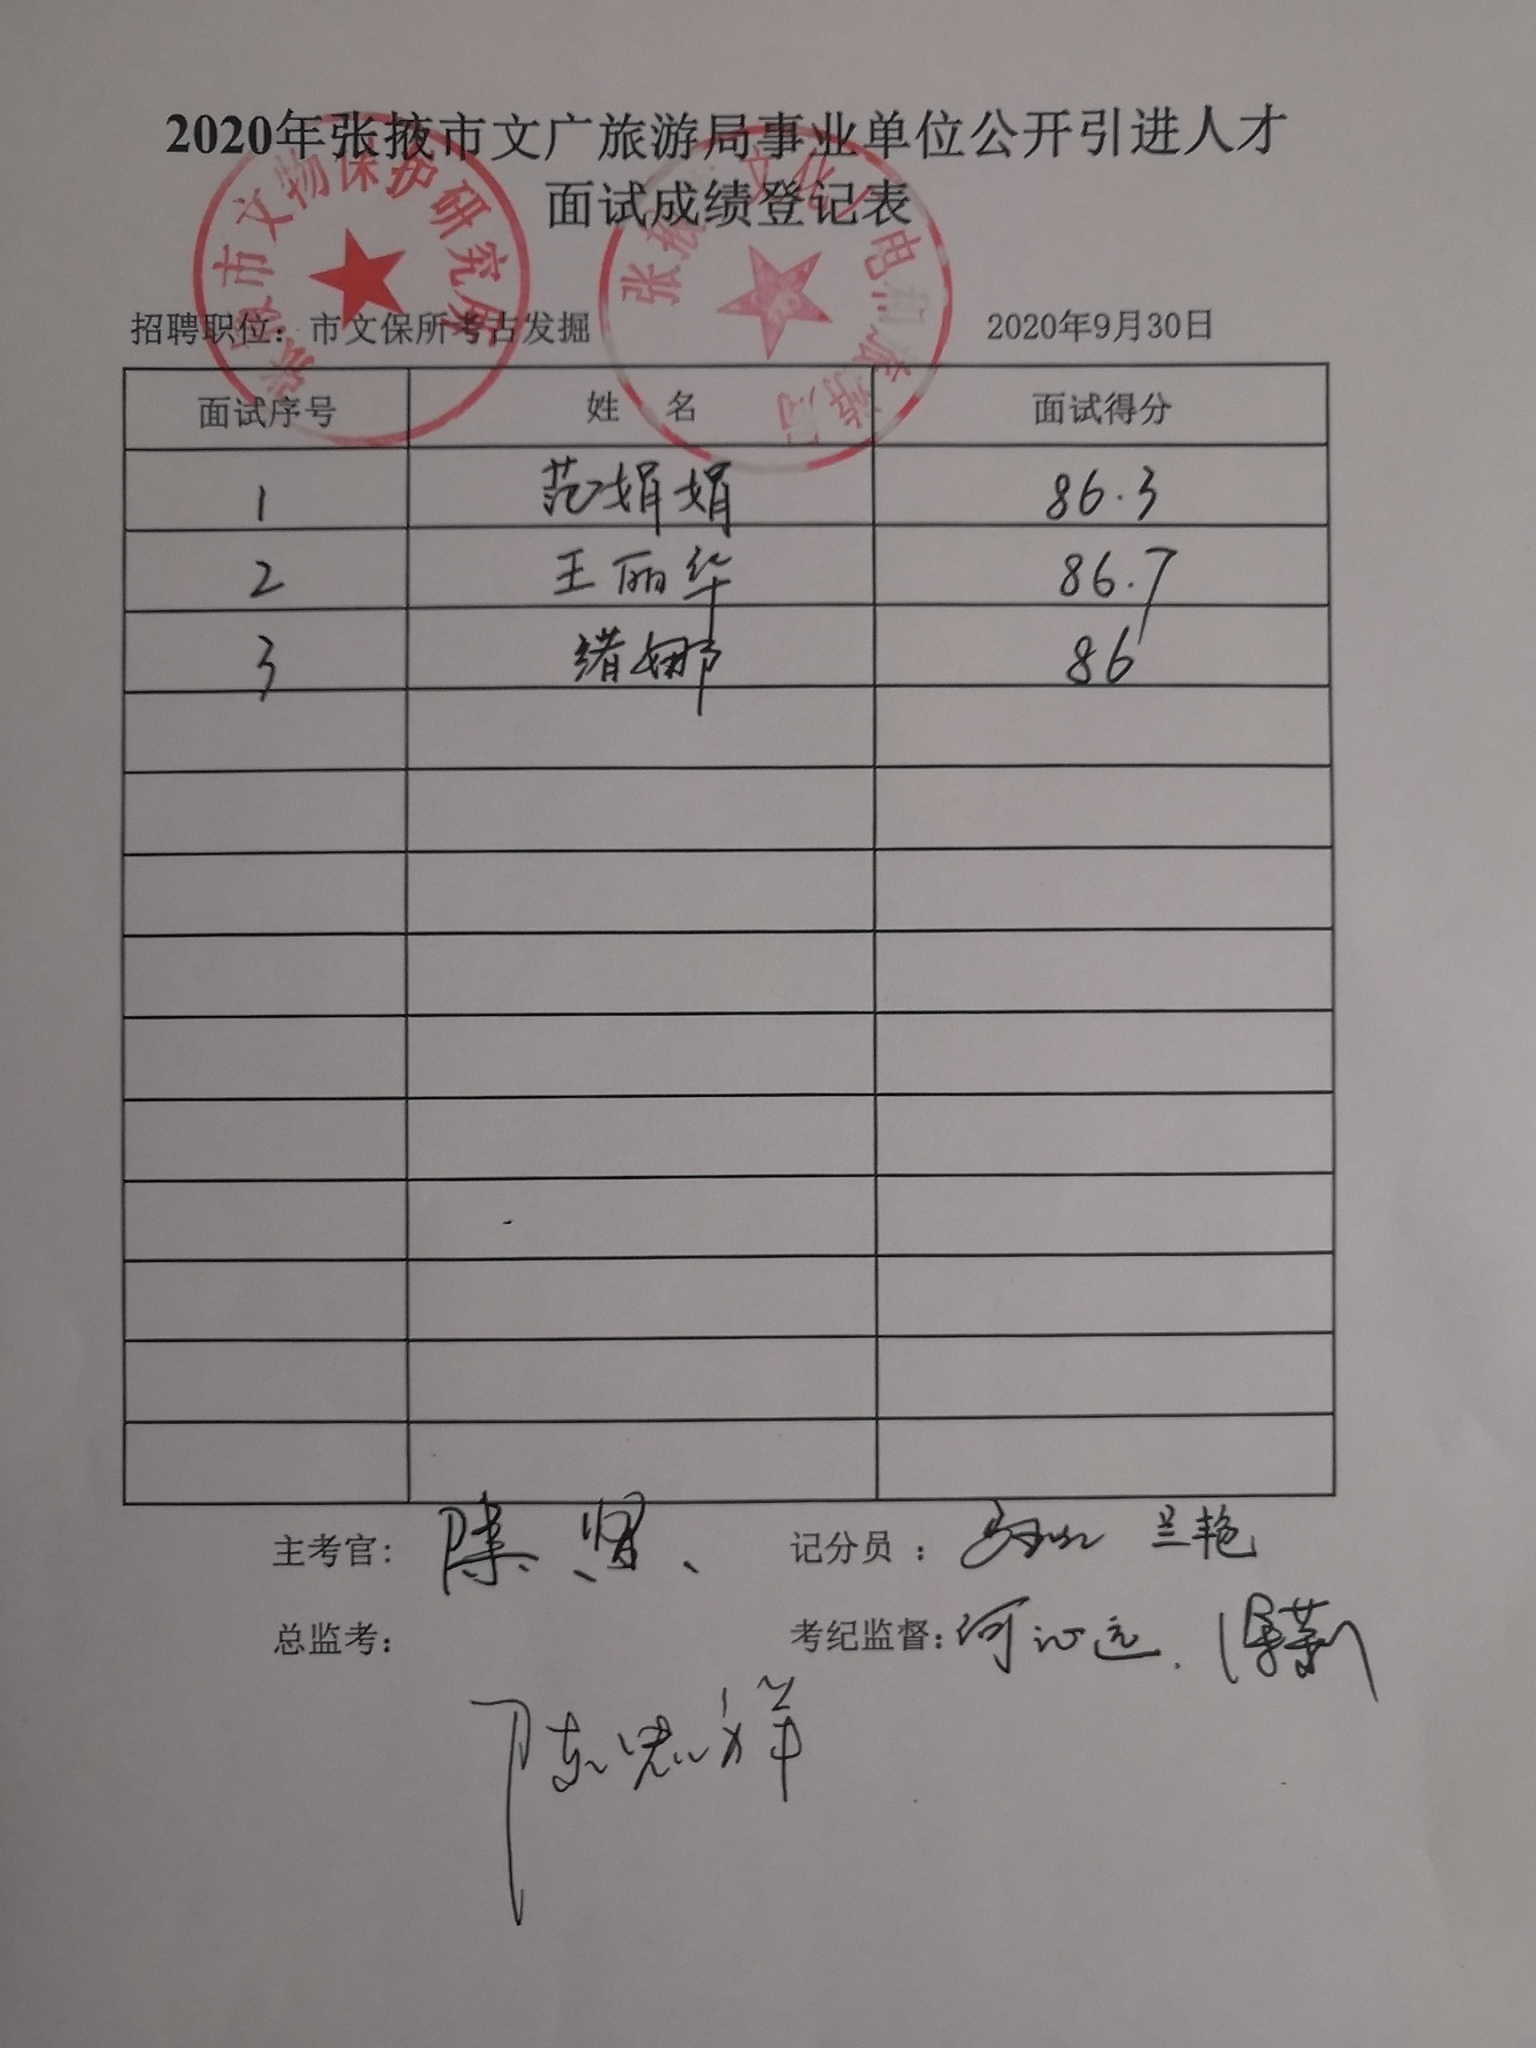 2020年张掖市文广旅游局事业单位公开引进人才
面试成绩登记表
张掖市文物保护研究所
招聘职位：市文保所考古发掘 2020年9月30日
面试序号 姓 名 面试得分
1 范娟娟 86.3
2 王丽华 86.7
3 褚娜 86
主考官： 陈 贤 记分员： 兰艳
总监考： 考纪监督：何沁远
陈思祥